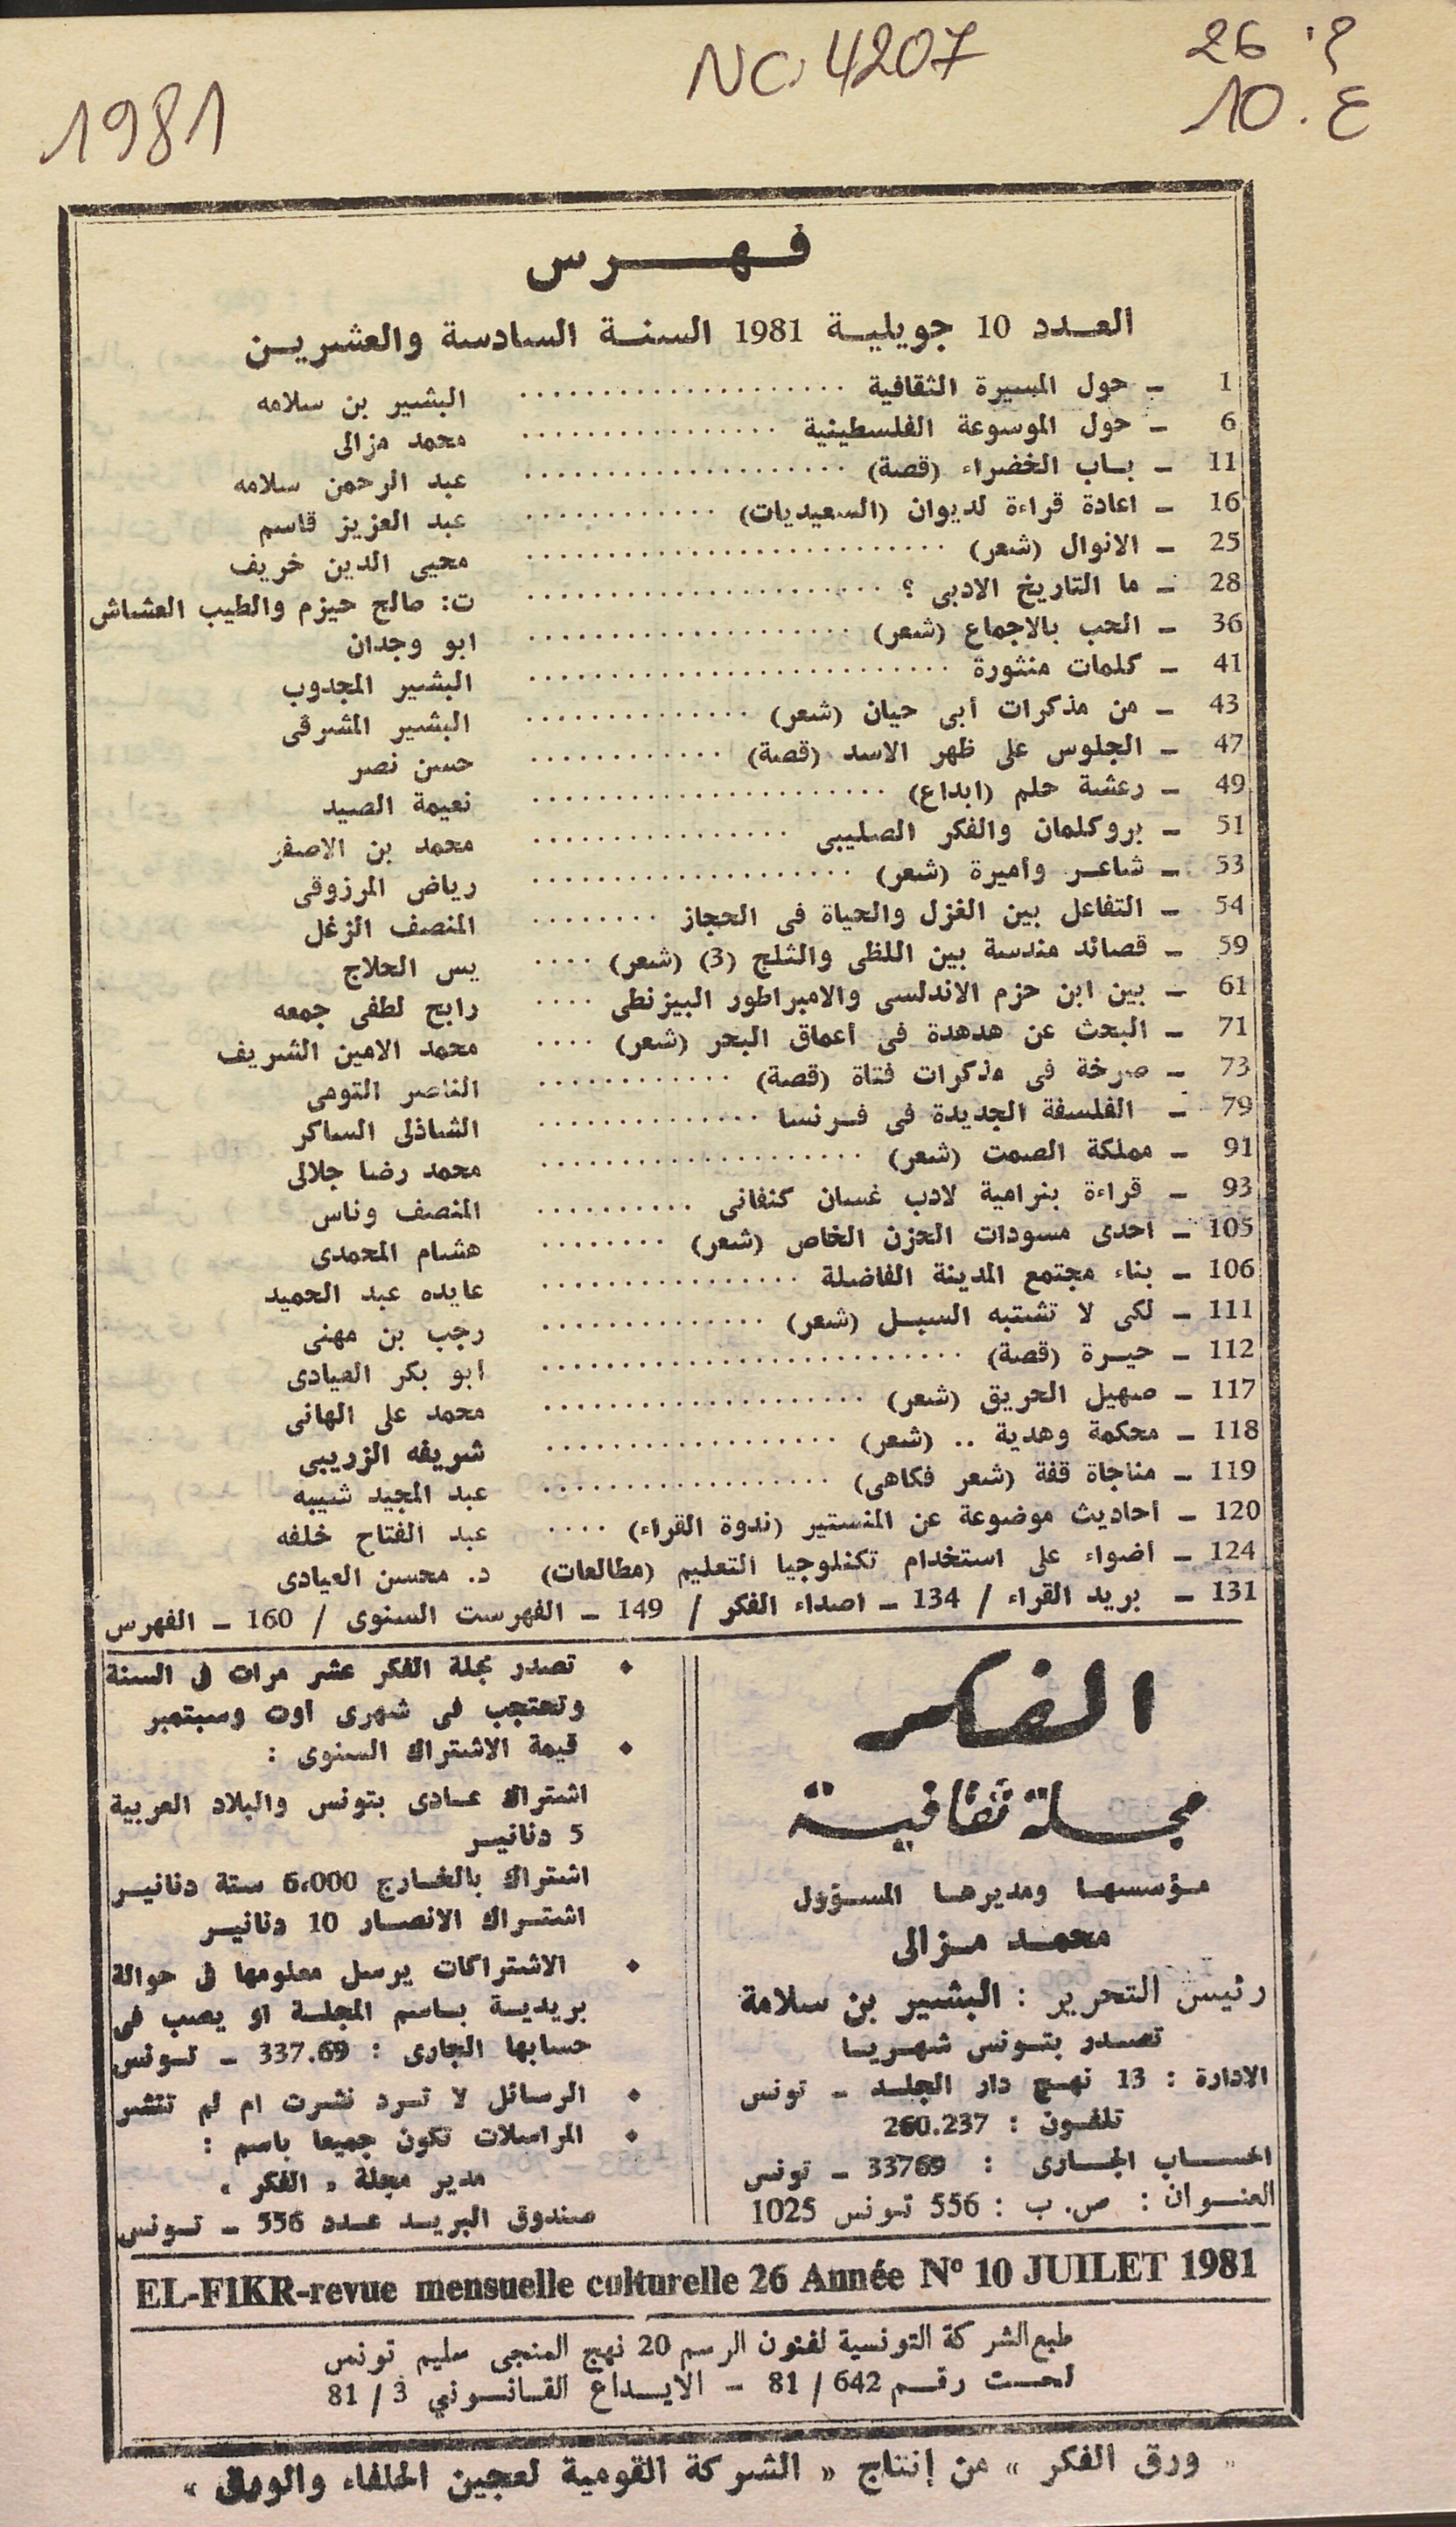 م. 26
NC. 4207
ع. 10
1981
فهرس
العدد 10 جويلية 1981 السنة السادسة والعشرين
1 – حول المسيرة الثقافية .................... البشير بن سلامه
6 – حول الموسوعة الفلسطينية ................ محمد مزالى
11 – باب الخضراء (قصة) .................... عبد الرحمن سلامه
16 – اعادة قراءة لديوان (السعيديات) ............ عبد العزيز قاسم
25 – الانوال (شعر) .......................... محيى الدين خريف
28 – ما التاريخ الادبى ؟ ...................... ت: صالح حيزم والطيب العشاش
36 – الحب بالاجماع (شعر) .................... ابو وجدان
41 – كلمات منثورة .......................... البشير المجدوب
43 – من مذكرات أبى حيان (شعر) .............. البشير المشرقى
47 – الجلوس على ظهر الاسد (قصة) ............ حسن نصر
49 – رعشة حلم (ابداع) ...................... نعيمة الصيد
51 – بروكلمان والفكر الصليبى ................ محمد بن الاصفر
53 – شاعر وأميرة (شعر) .................... رياض المرزوقى
54 – التفاعل بين الغزل والحياة فى الحجاز ........ المنصف الزغل
59 – قصائد مندسة بين اللظى والثلج (3) (شعر) .... يس الحلاج
61 – بين ابن حزم الاندلسى والامبراطور البيزنطى .... رابح لطفى جمعه
71 – البحث عن هدهدة فى أعماق البحر (شعر) .... محمد الامين الشريف
73 – صرخة فى مذكرات فتاة (قصة) ............ الناصر التومى
79 – الفلسفة الجديدة فى فرنسا .............. الشاذلى الساكر
91 – مملكة الصمت (شعر) .................... محمد رضا جلالى
93 – قراءة بنرامية لادب غسان كنفانى .......... المنصف وناس
105 – احدى مسودات الحزن الخاص (شعر) ........ هشام المحمدى
106 – بناء مجتمع المدينة الفاضلة ................ عايده عبد الحميد
111 – لكى لا تشتبه السبل (شعر) .............. رجب بن مهنى
112 – حيرة (قصة) .......................... أبو بكر العيادى
117 – صهيل الحريق (شعر) .................... محمد على الهانى
118 – محكمة وهدية .. (شعر) .................. شريفه الزريبى
119 – مناجاة قفة (شعر فكاهى) .................. عبد المجيد شيبه
120 – أحاديث موضوعة عن المنستير (ندوة القراء) .... عبد الفتاح خلفه
124 – أضواء على استخدام تكنلوجيا التعليم (مطالعات) د. محسن العيادى
131 – بريد القراء / 134 – اصداء الفكر / 149 – الفهرست السنوى / 160 – الفهرس
الفكر
مجلة ثقافية
مؤسسها ومديرها المسؤول
محمد مزالى
رئيس التحرير : البشير بن سلامة
تصدر بتونس شهريا
الادارة : 13 نهج دار الجلد – تونس
تلفون : 260.237
الحساب الجارى : 33769 – تونس
العنوان : ص. ب : 556 تونس 1025
♦ تصدر مجلة الفكر عشر مرات فى السنة
وتحتجب فى شهرى أوت وسبتمبر
♦ قيمة الاشتراك السنوى :
اشتراك عادى بتونس والبلاد العربية
5 دنانير
اشتراك بالخارج 6،000 ستة دنانير
اشتراك الانصار 10 دنانير
♦ الاشتراكات يرسل معلومها فى حوالة
بريدية باسم المجلة او يصب فى
حسابها الجارى : 337.69 – تونس
♦ الرسائل لا ترد نشرت ام لم تنشر
♦ المراسلات تكون جميعا باسم :
مدير مجلة « الفكر »
صندوق البريد عدد 556 – تونس
EL-FIKR-revue mensuelle culturelle 26 Année N° 10 JUILET 1981
طبع الشركة التونسية لفنون الرسم 20 نهج المنجى سليم تونس
لحست رقم 642 / 81 – الايداع القانوني 3 / 81
« ورق الفكر » من إنتاج « الشركة القومية لعجين الحلفاء والورق »